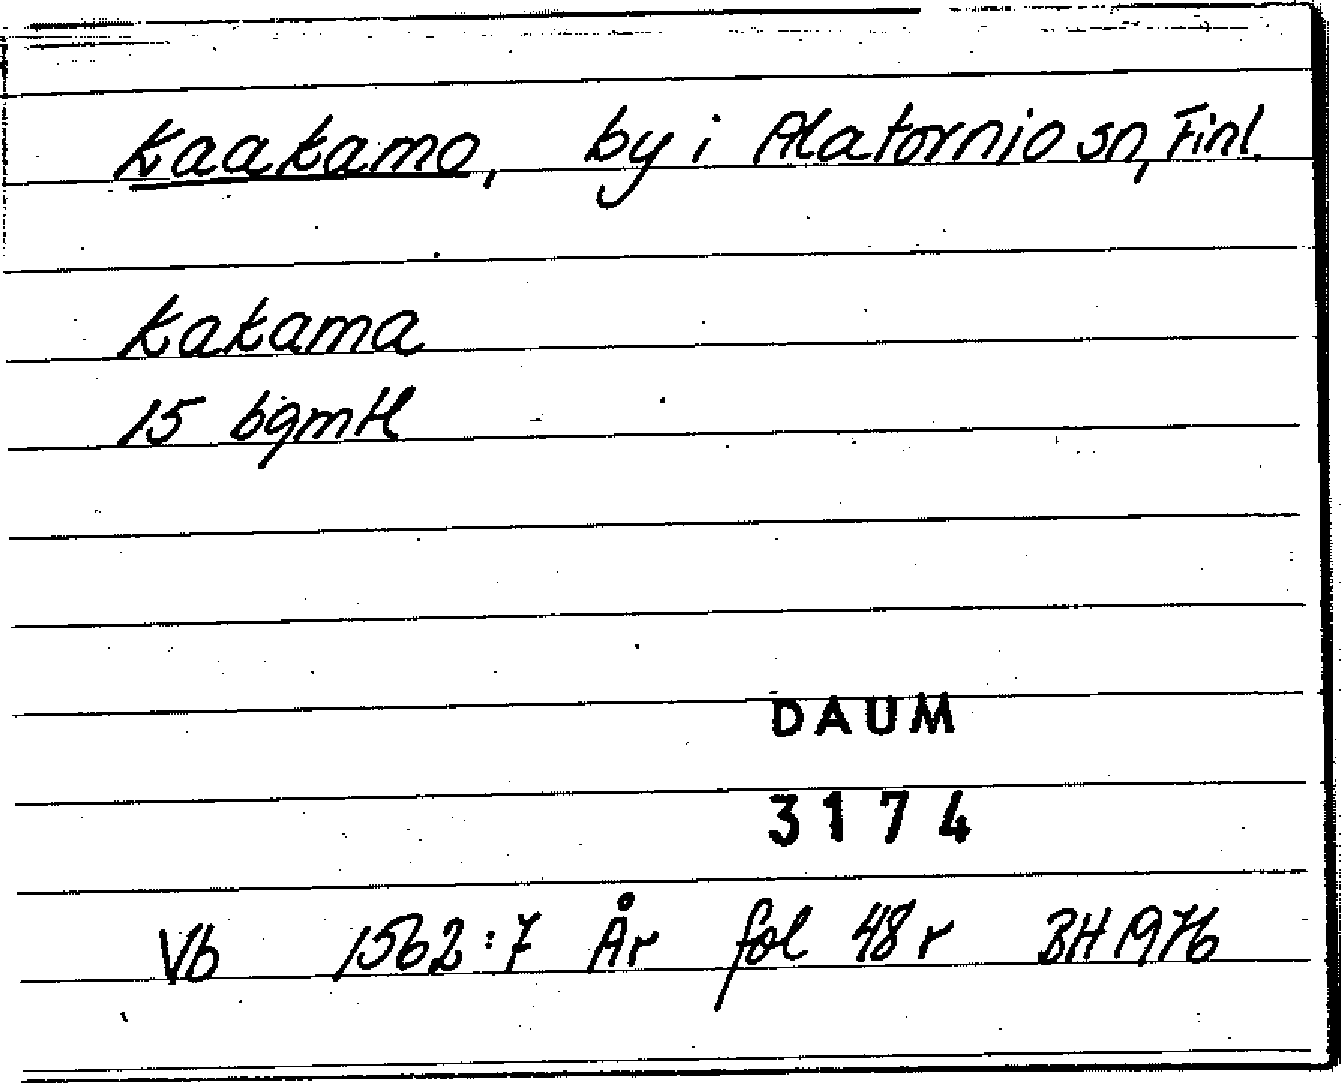 Kaakamo, by i Alatornio sn, Finl.
Kakama
15 bgmtl
DAUM
3174
Vb 1562:7 År fol 48 r BH 1976